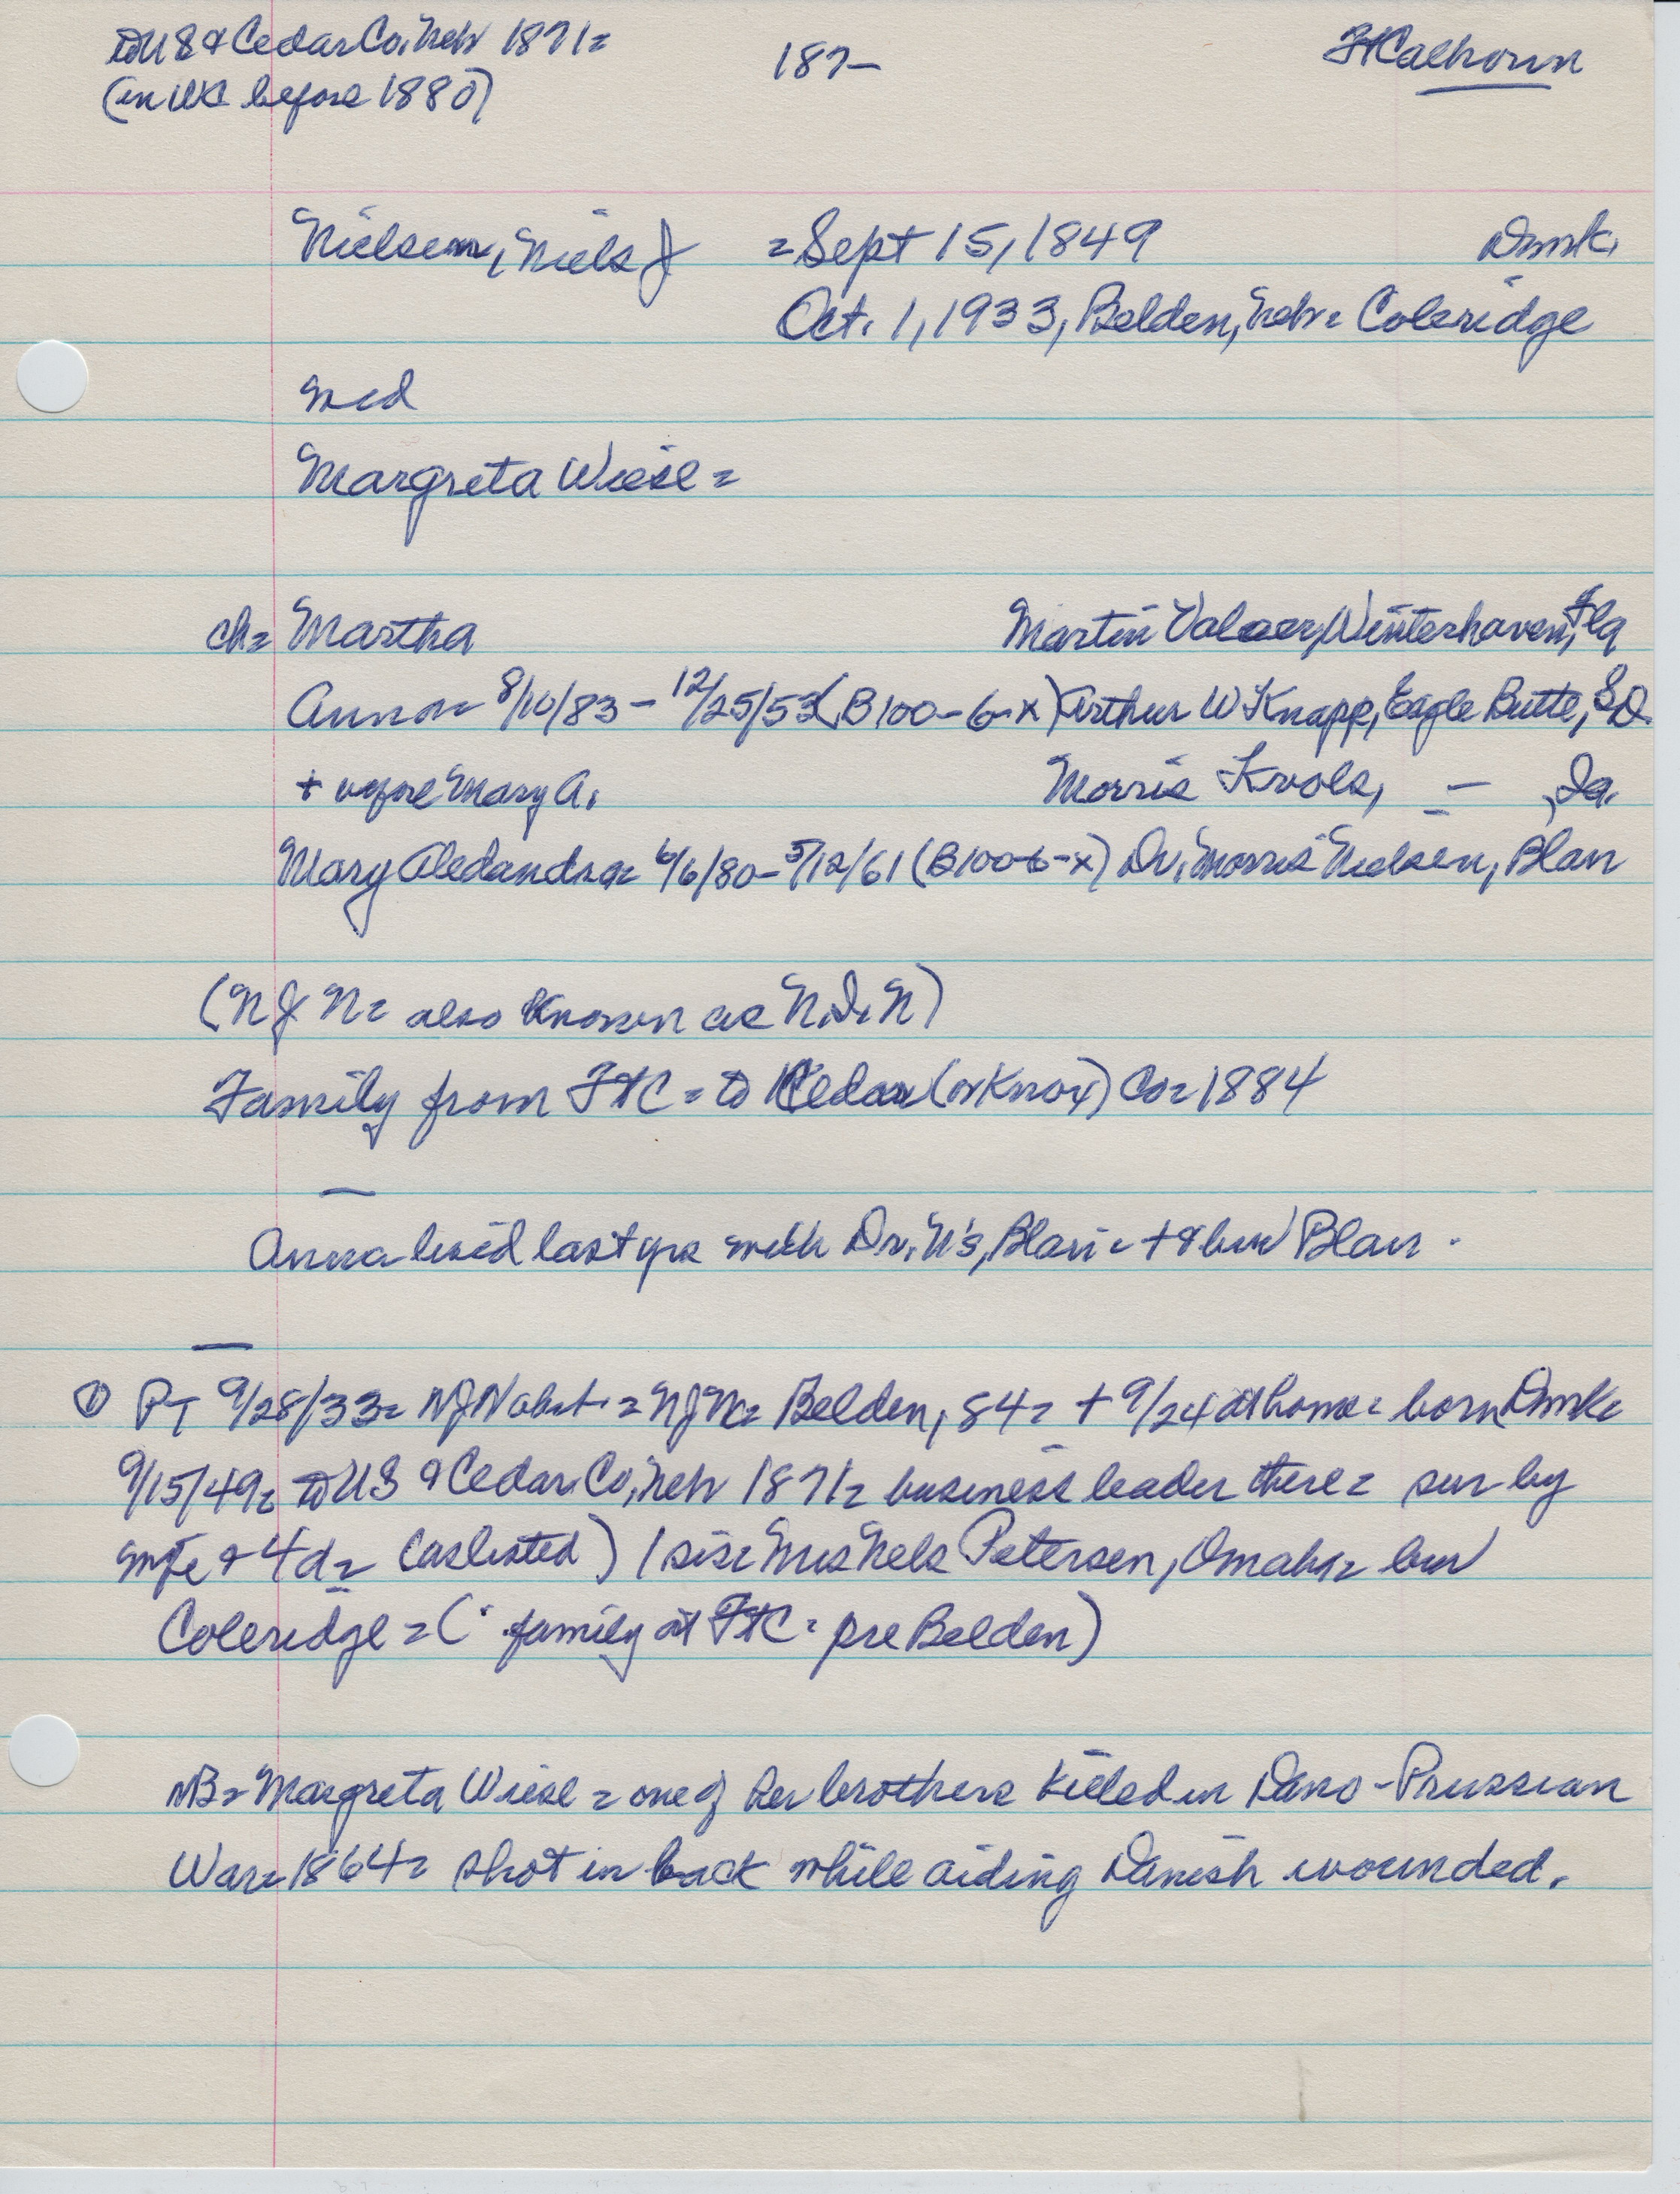 to US & Cedar Co, Nebr 1871=
187-
FtCalhoun
(in WC before 1880)
Nielsen, Niels J = Sept 15, 1849 Dnmk,
Oct. 1, 1933, Belden, Nebr = Coleridge
med
Margreta Wiese =
ch= Martha Martin Valaer, Winterhaven, Fla
Anna= 8/10/83 - 12/25/53 (B100-6-x) Arthur W Knapp, Eagle Butte, SD.
+ before Mary A. Morris Krols, — , Ia.
Mary Aledandra= 6/6/80 - 5/12/61 (B100-6-x) Dr. Morris Nielsen, Blair
(N J N= also known as N. I. N)
Family from FtC = to Cedar (or Knox) Co= 1884
—
Anna lived last yrs with Dr. N's, Blair = + & bur Blair.
—
① PT 9/28/33= NJN obit. = NJN= Belden, 84= + 9/24 at home= born Dnmk=
9/15/49= to US & Cedar Co, Nebr 1871= business leader there= sur by
wife & 4d= (as listed) 1 sis= Mrs Nels Petersen, Omaha= bur
Coleridge = ( family at FtC = pre Belden)
NB= Margreta Wiese = one of her brothers killed in Dano-Prussian
War= 1864= shot in back while aiding Danish wounded.